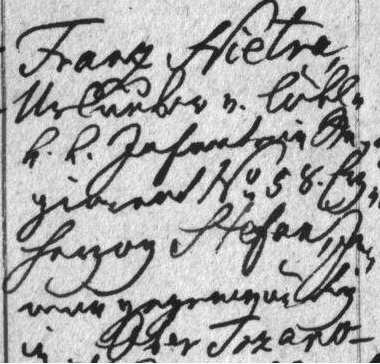 Franz Nietra,
Urlauber v. löbl.
k. k. Infanterie Re-
giment No 58. Erz-
herzog Stefan,
gegenwärtig
in Ober